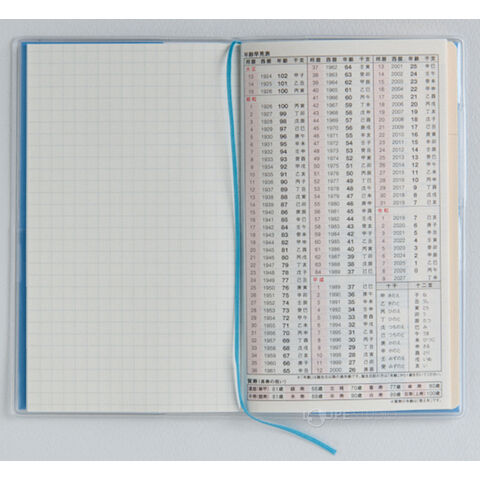 年齢早見表
邦暦 西暦 年齢 干支
大正
13 1924 102 甲子
14 1925 101 乙丑
15 1926 100 丙寅
昭和
1 1926 100 丙寅
2 1927 99 丁卯
3 1928 98 戊辰
4 1929 97 己巳
5 1930 96 庚午
6 1931 95 辛未
7 1932 94 壬申
8 1933 93 癸酉
9 1934 92 甲戌
10 1935 91 乙亥
11 1936 90 丙子
12 1937 89 丁丑
13 1938 88 戊寅
14 1939 87 己卯
15 1940 86 庚辰
16 1941 85 辛巳
17 1942 84 壬午
18 1943 83 癸未
19 1944 82 甲申
20 1945 81 乙酉
21 1946 80 丙戌
22 1947 79 丁亥
23 1948 78 戊子
24 1949 77 己丑
25 1950 76 庚寅
26 1951 75 辛卯
27 1952 74 壬辰
28 1953 73 癸巳
29 1954 72 甲午
30 1955 71 乙未
31 1956 70 丙申
32 1957 69 丁酉
33 1958 68 戊戌
34 1959 67 己亥
35 1960 66 庚子
36 1961 65 辛丑
37 1962 64 壬寅
38 1963 63 癸卯
39 1964 62 甲辰
40 1965 61 乙巳
41 1966 60 丙午
42 1967 59 丁未
43 1968 58 戊申
44 1969 57 己酉
45 1970 56 庚戌
46 1971 55 辛亥
47 1972 54 壬子
48 1973 53 癸丑
49 1974 52 甲寅
50 1975 51 乙卯
51 1976 50 丙辰
52 1977 49 丁巳
53 1978 48 戊午
54 1979 47 己未
55 1980 46 庚申
56 1981 45 辛酉
57 1982 44 壬戌
58 1983 43 癸亥
59 1984 42 甲子
60 1985 41 乙丑
61 1986 40 丙寅
62 1987 39 丁卯
63 1988 38 戊辰
64 1989 37 己巳
平成
1 1989 37 己巳
2 1990 36 庚午
3 1991 35 辛未
4 1992 34 壬申
5 1993 33 癸酉
6 1994 32 甲戌
7 1995 31 乙亥
8 1996 30 丙子
9 1997 29 丁丑
10 1998 28 戊寅
11 1999 27 己卯
12 2000 26 庚辰
13 2001 25 辛巳
14 2002 24 壬午
15 2003 23 癸未
16 2004 22 甲申
17 2005 21 乙酉
18 2006 20 丙戌
19 2007 19 丁亥
20 2008 18 戊子
21 2009 17 己丑
22 2010 16 庚寅
23 2011 15 辛卯
24 2012 14 壬辰
25 2013 13 癸巳
26 2014 12 甲午
27 2015 11 乙未
28 2016 10 丙申
29 2017 9 丁酉
30 2018 8 戊戌
31 2019 7 己亥
令和
1 2019 7 己亥
2 2020 6 庚子
3 2021 5 辛丑
4 2022 4 壬寅
5 2023 3 癸卯
6 2024 2 甲辰
7 2025 1 乙巳
8 2026 0 丙午
9 2027 丁未
十干 十二支
甲 きのえ 子 ね
乙 きのと 丑 うし
丙 ひのえ 寅 とら
丁 ひのと 卯 う
戊 つちのえ 辰 たつ
己 つちのと 巳 み
庚 かのえ 午 うま
辛 かのと 未 ひつじ
壬 みずのえ 申 さる
癸 みずのと 酉 とり
戌 いぬ
亥 い
賀寿
還暦 61歳 緑寿 66歳 古稀 70歳 喜寿 77歳 傘寿 80歳
半寿 81歳 米寿 88歳 卒寿 90歳 白寿 99歳 百寿 100歳